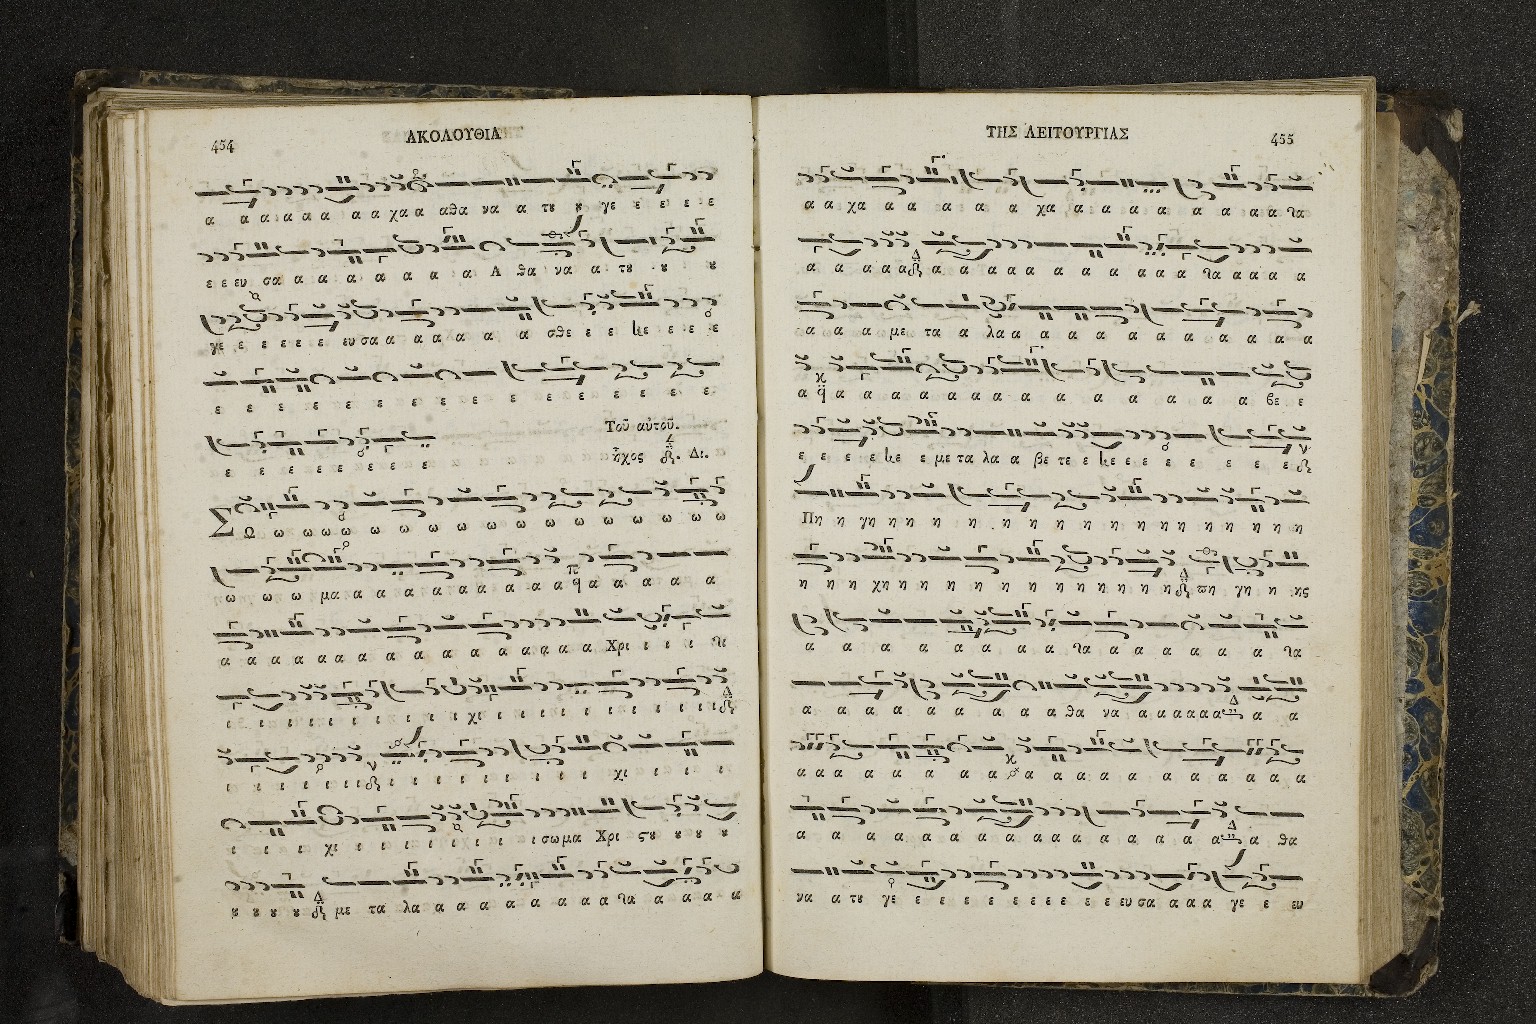 454
ΑΚΟΛΟΥΘΙΑ
α α α α α α α α χα α αθα να α του ου γε ε ε ε ε
ε ε ευ σα α α α α α α α α Α θα να α του ου ου
γε ε ε ε ε ε ευ σα α α α α α α α σθε ε ε κε ε ε ε ε
ε ε ε ε ε ε ε ε ε ε ε ε ε ε ε ε
Τοῦ αὐτοῦ.
ε ε ε ε ε ε ε ε
ἦχος Δι.
ΣΩ ω ω ω ω ω ω ω ω ω ω ω ω ω ω ω ω
ω ω ω μα α α α α α α α α α α α α α α
α α α α α α α α α α α α α α α α Χρι ι ι ι ϛι
ι ι ι ι ι ι ι ι ι ι χι ι ι ι ι ι ι ι ι ι ι ι
ι ι ι ι ι ι ι ι ι ι ι ι ι ι χι ι ι ι
ι ι ι χι ι ι ι ι ι ι ι ι σωμα Χρι ϛου ου ου ου
ου ου ου ου με τα λα α α α α α α α α ϛα α α α α
ΤΗΣ ΛΕΙΤΟΥΡΓΙΑΣ
455
α α χα α α α α α χα α α α α α α α α ϛα
α α α α α α α α α α α α α α α α α ϛα α α α α
α α α με τα α λα α α α α α α α α α α α
α α α α α α α α α α α α α α βε ε
ε ε ε ε κε ε με τα λα α βε τε ε κε ε ε ε ε ε ε ε ε
Πη η γη η η η η η η η η η η η η η η η η
η η η χη η η η η η η η η η η η η πη γη η ης
α α α α α α α ϛα α α α α α ϛα
α α α α α α α α α θα να α α α α α α α α
α α α α α α α α α α α α α α α α α α α
α α α α α α α α α α α α α α α α α α θα
να α του γε ε ε ε ε ε ε ε ε ε ε ευ σα α α α γε ε ευ